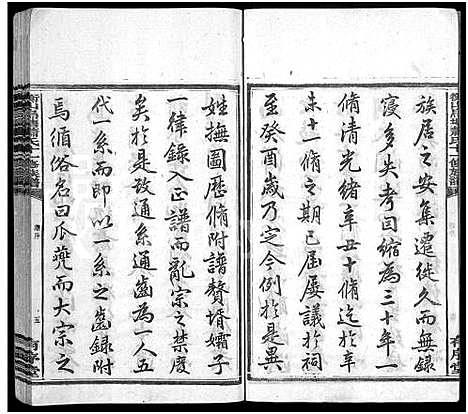 族居之安集遷徙久而無録
寖多失考因縮為三十年一
脩清光緒辛丑十脩迄於辛
未十一之期已屆屢議於祠
至癸酉歲乃定令例於是異
姓撫圖歷脩附譜贅壻孀子
一律録入正譜而亂宗之禁廢
矣於是改通系通齒為一人五
代一系而即以一系之齒録附
焉循俗名曰瓜瓞而大宗之
五
有序堂